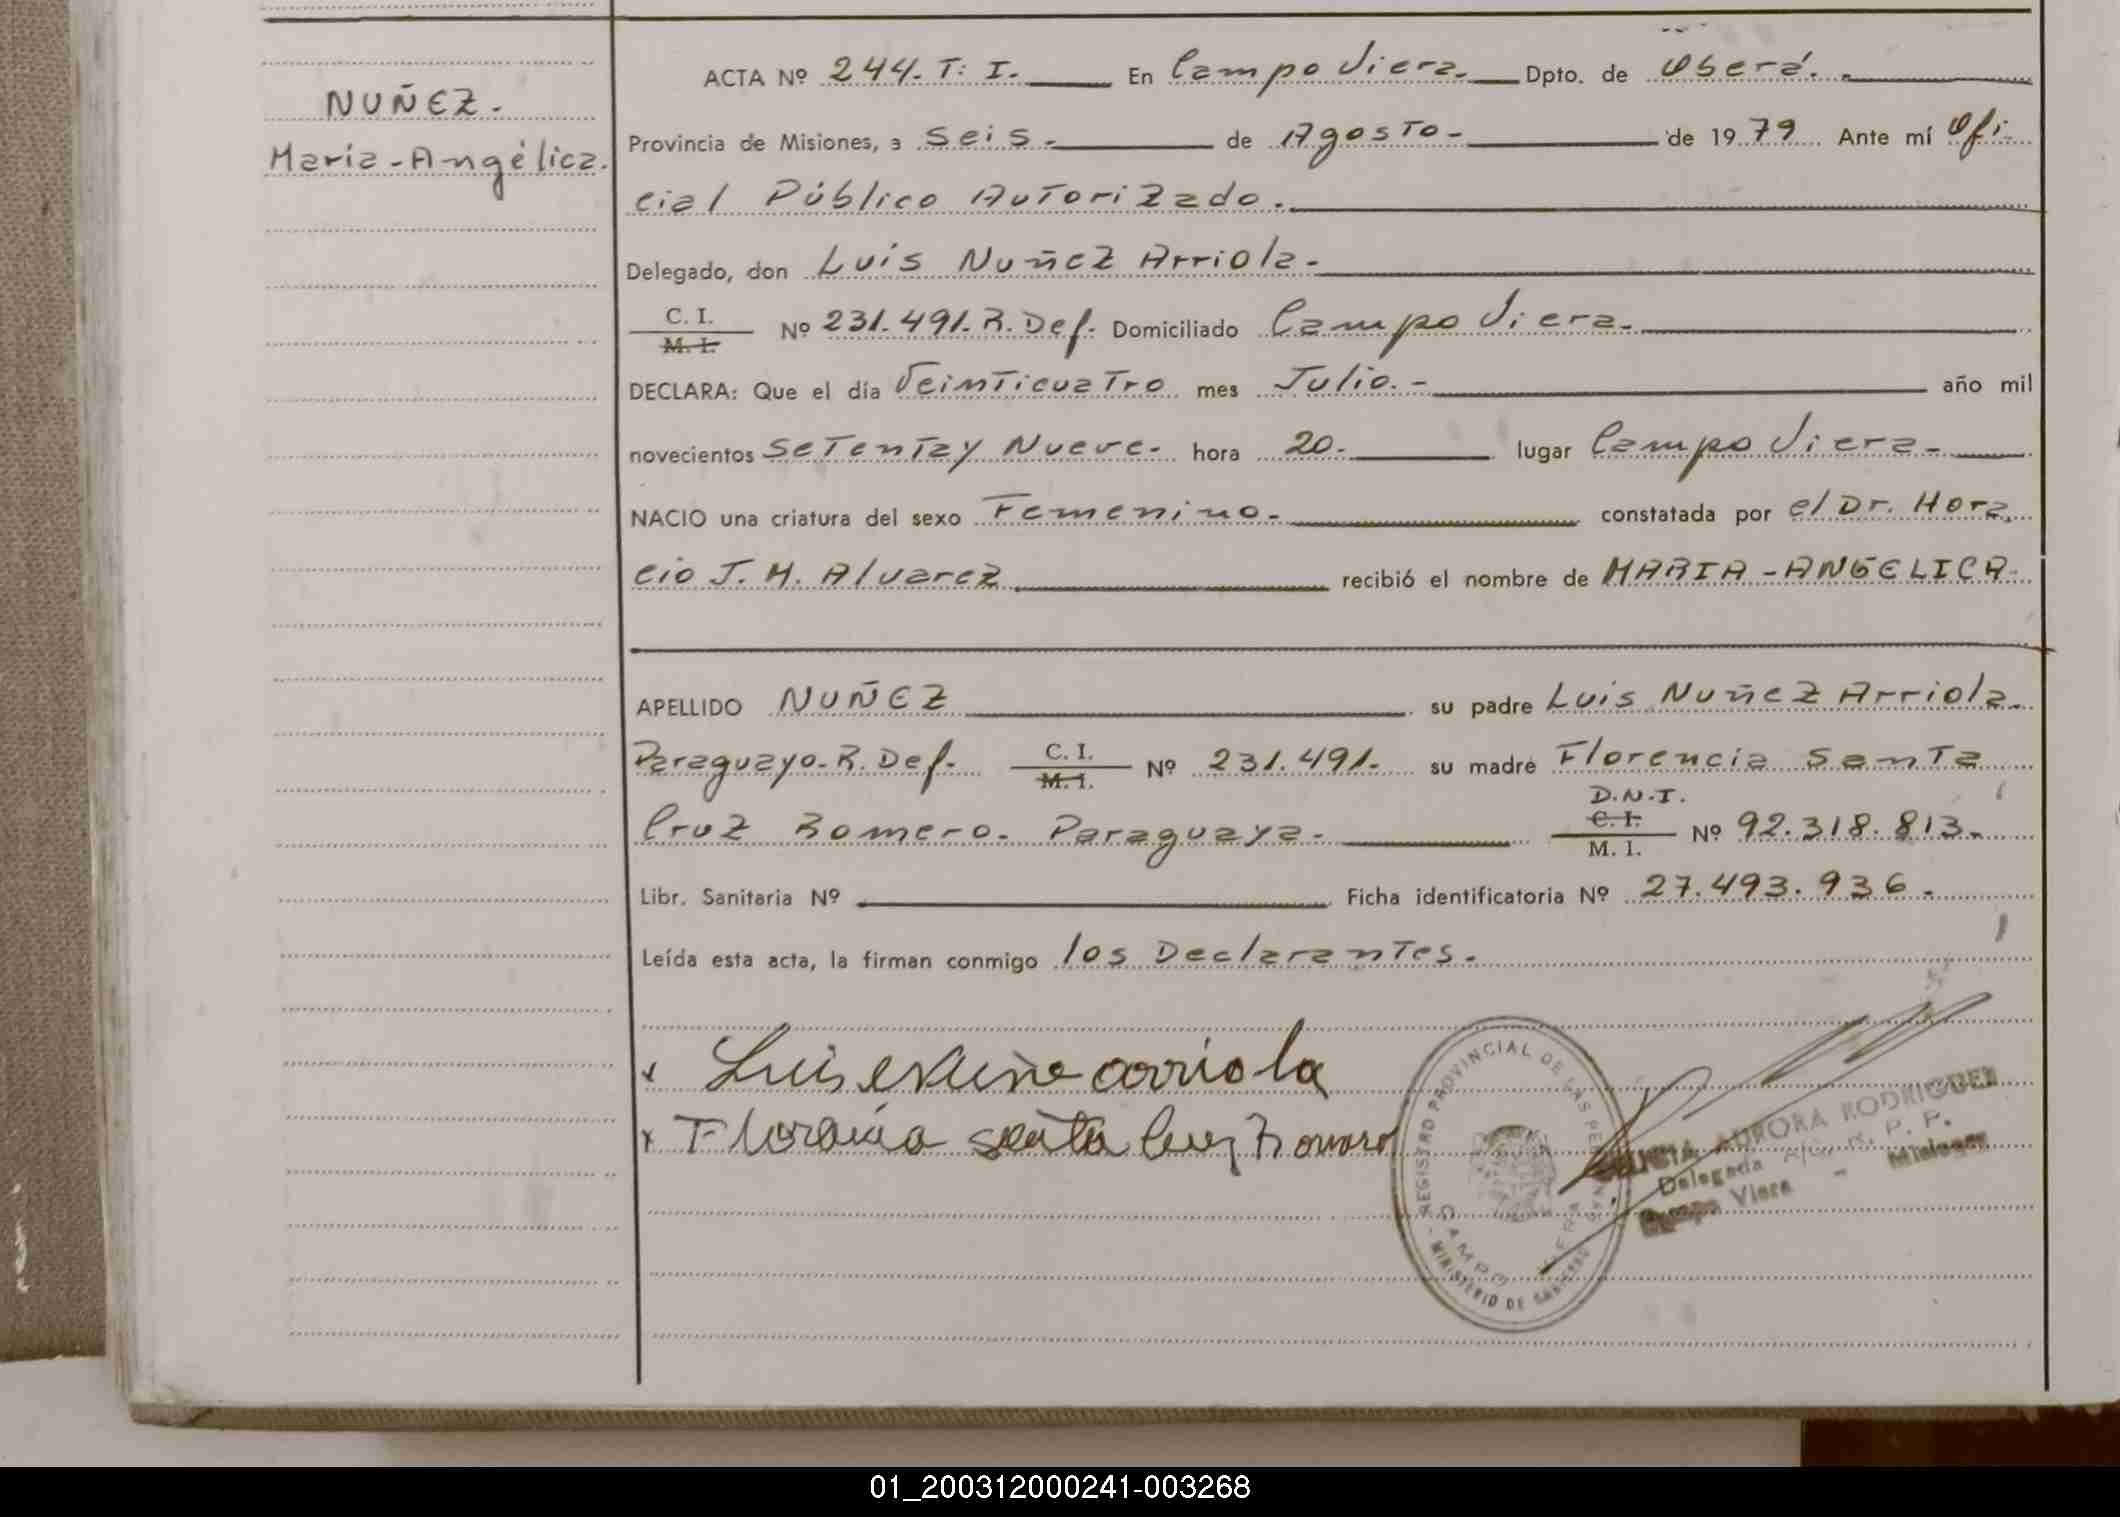 NUÑEZ.
María-Angélica.
ACTA Nº 244. T: I. En Campo Viera. Dpto. de Oberá.
Provincia de Misiones, a Seis. de Agosto. de 1979 Ante mí Ofi-
cial Público Autorizado.
Delegado, don Luis Nuñez Arriola.
C. I.
M. I. Nº 231.491. R. Def. Domiciliado Campo Viera.
DECLARA: Que el día Veinticuatro mes Julio. año mil
novecientos Setenta y Nueve. hora 20. lugar Campo Viera.
NACIO una criatura del sexo Femenino. constatada por el Dr. Hora
cio J. M. Alvarez recibió el nombre de MARIA-ANGELICA
APELLIDO NUÑEZ su padre Luis Nuñez Arriola.
Paraguayo. R. Def. C. I.
M. I. Nº 231.491. su madre Florencia Santa
Cruz Romero. Paraguaya. D.N.I.
C. I.
M. I. Nº 92.318.813.
Libr. Sanitaria Nº Ficha identificatoria Nº 27.493.936.
Leída esta acta, la firman conmigo los Declarantes.
x Luis Nuñe arriola
x Florencia santa Cruz Romero
REGISTRO PROVINCIAL DE LAS PERSONAS
CAMPO VIERA
MINISTERIO DE GOBIERNO
AURORA RODRIGUEZ
Delegada R. P. P.
Campo Viera - Misiones
01_200312000241-003268